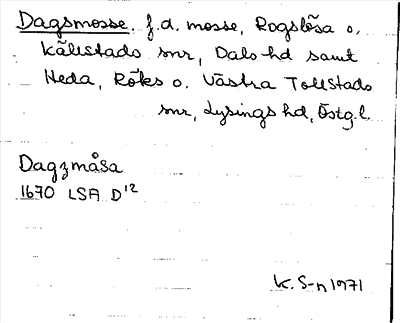 Dagsmosse. f.d. mosse, Rogslösa o.
Källstads snr, Dals hd samt
Heda, Röks o. Västra Tollstads
snr, Lysings hd, Östg.l.
Dagzmåsa
1670 LSA D12
K. S-n 1971